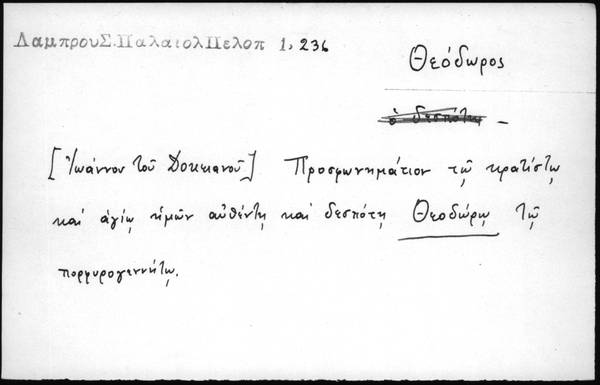 ΛαμπρουΣ.ΠαλαιολΠελοπ 1, 236
Θεόδωρος
ὁ δεσπότης -
[Ἰωάννου τοῦ Δοκιανοῦ] Προσφωνημάτιον τῷ κρατίστῳ
καὶ ἁγίῳ ἡμῶν αὐθέντῃ καὶ δεσπότῃ Θεοδώρῳ τῷ
πορφυρογεννήτῳ.